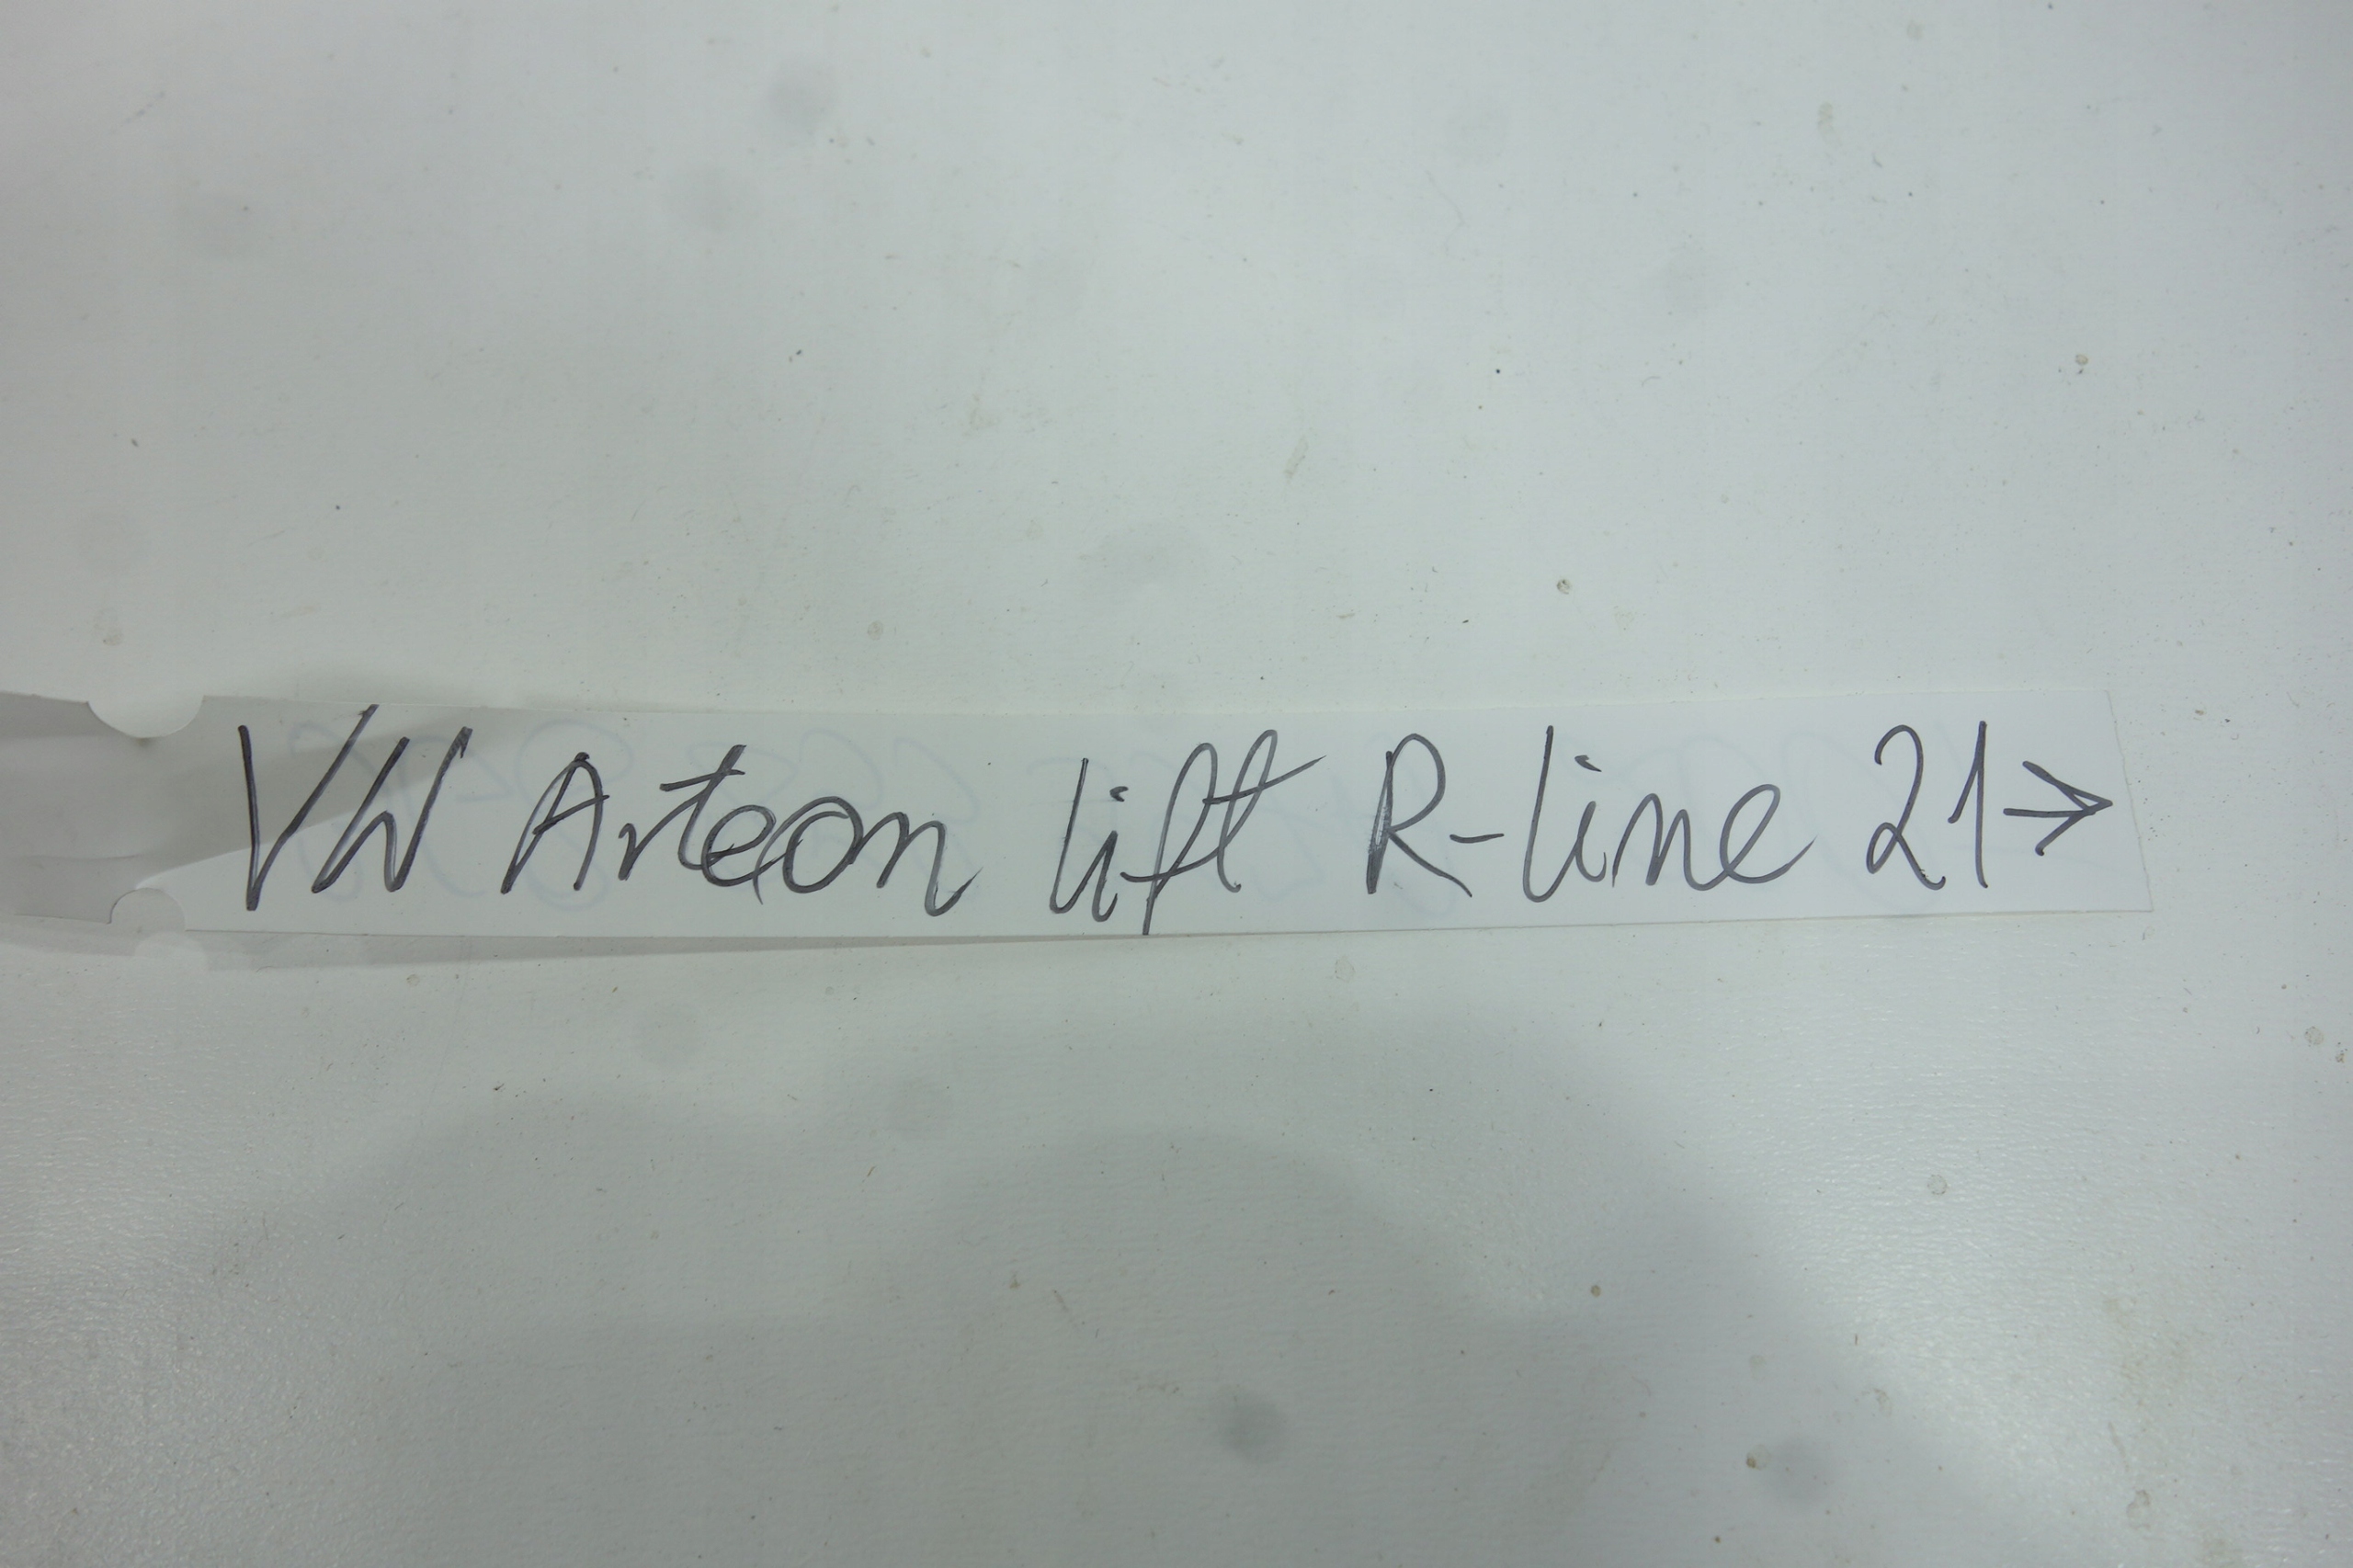 VW Arteon lift R-line 21→